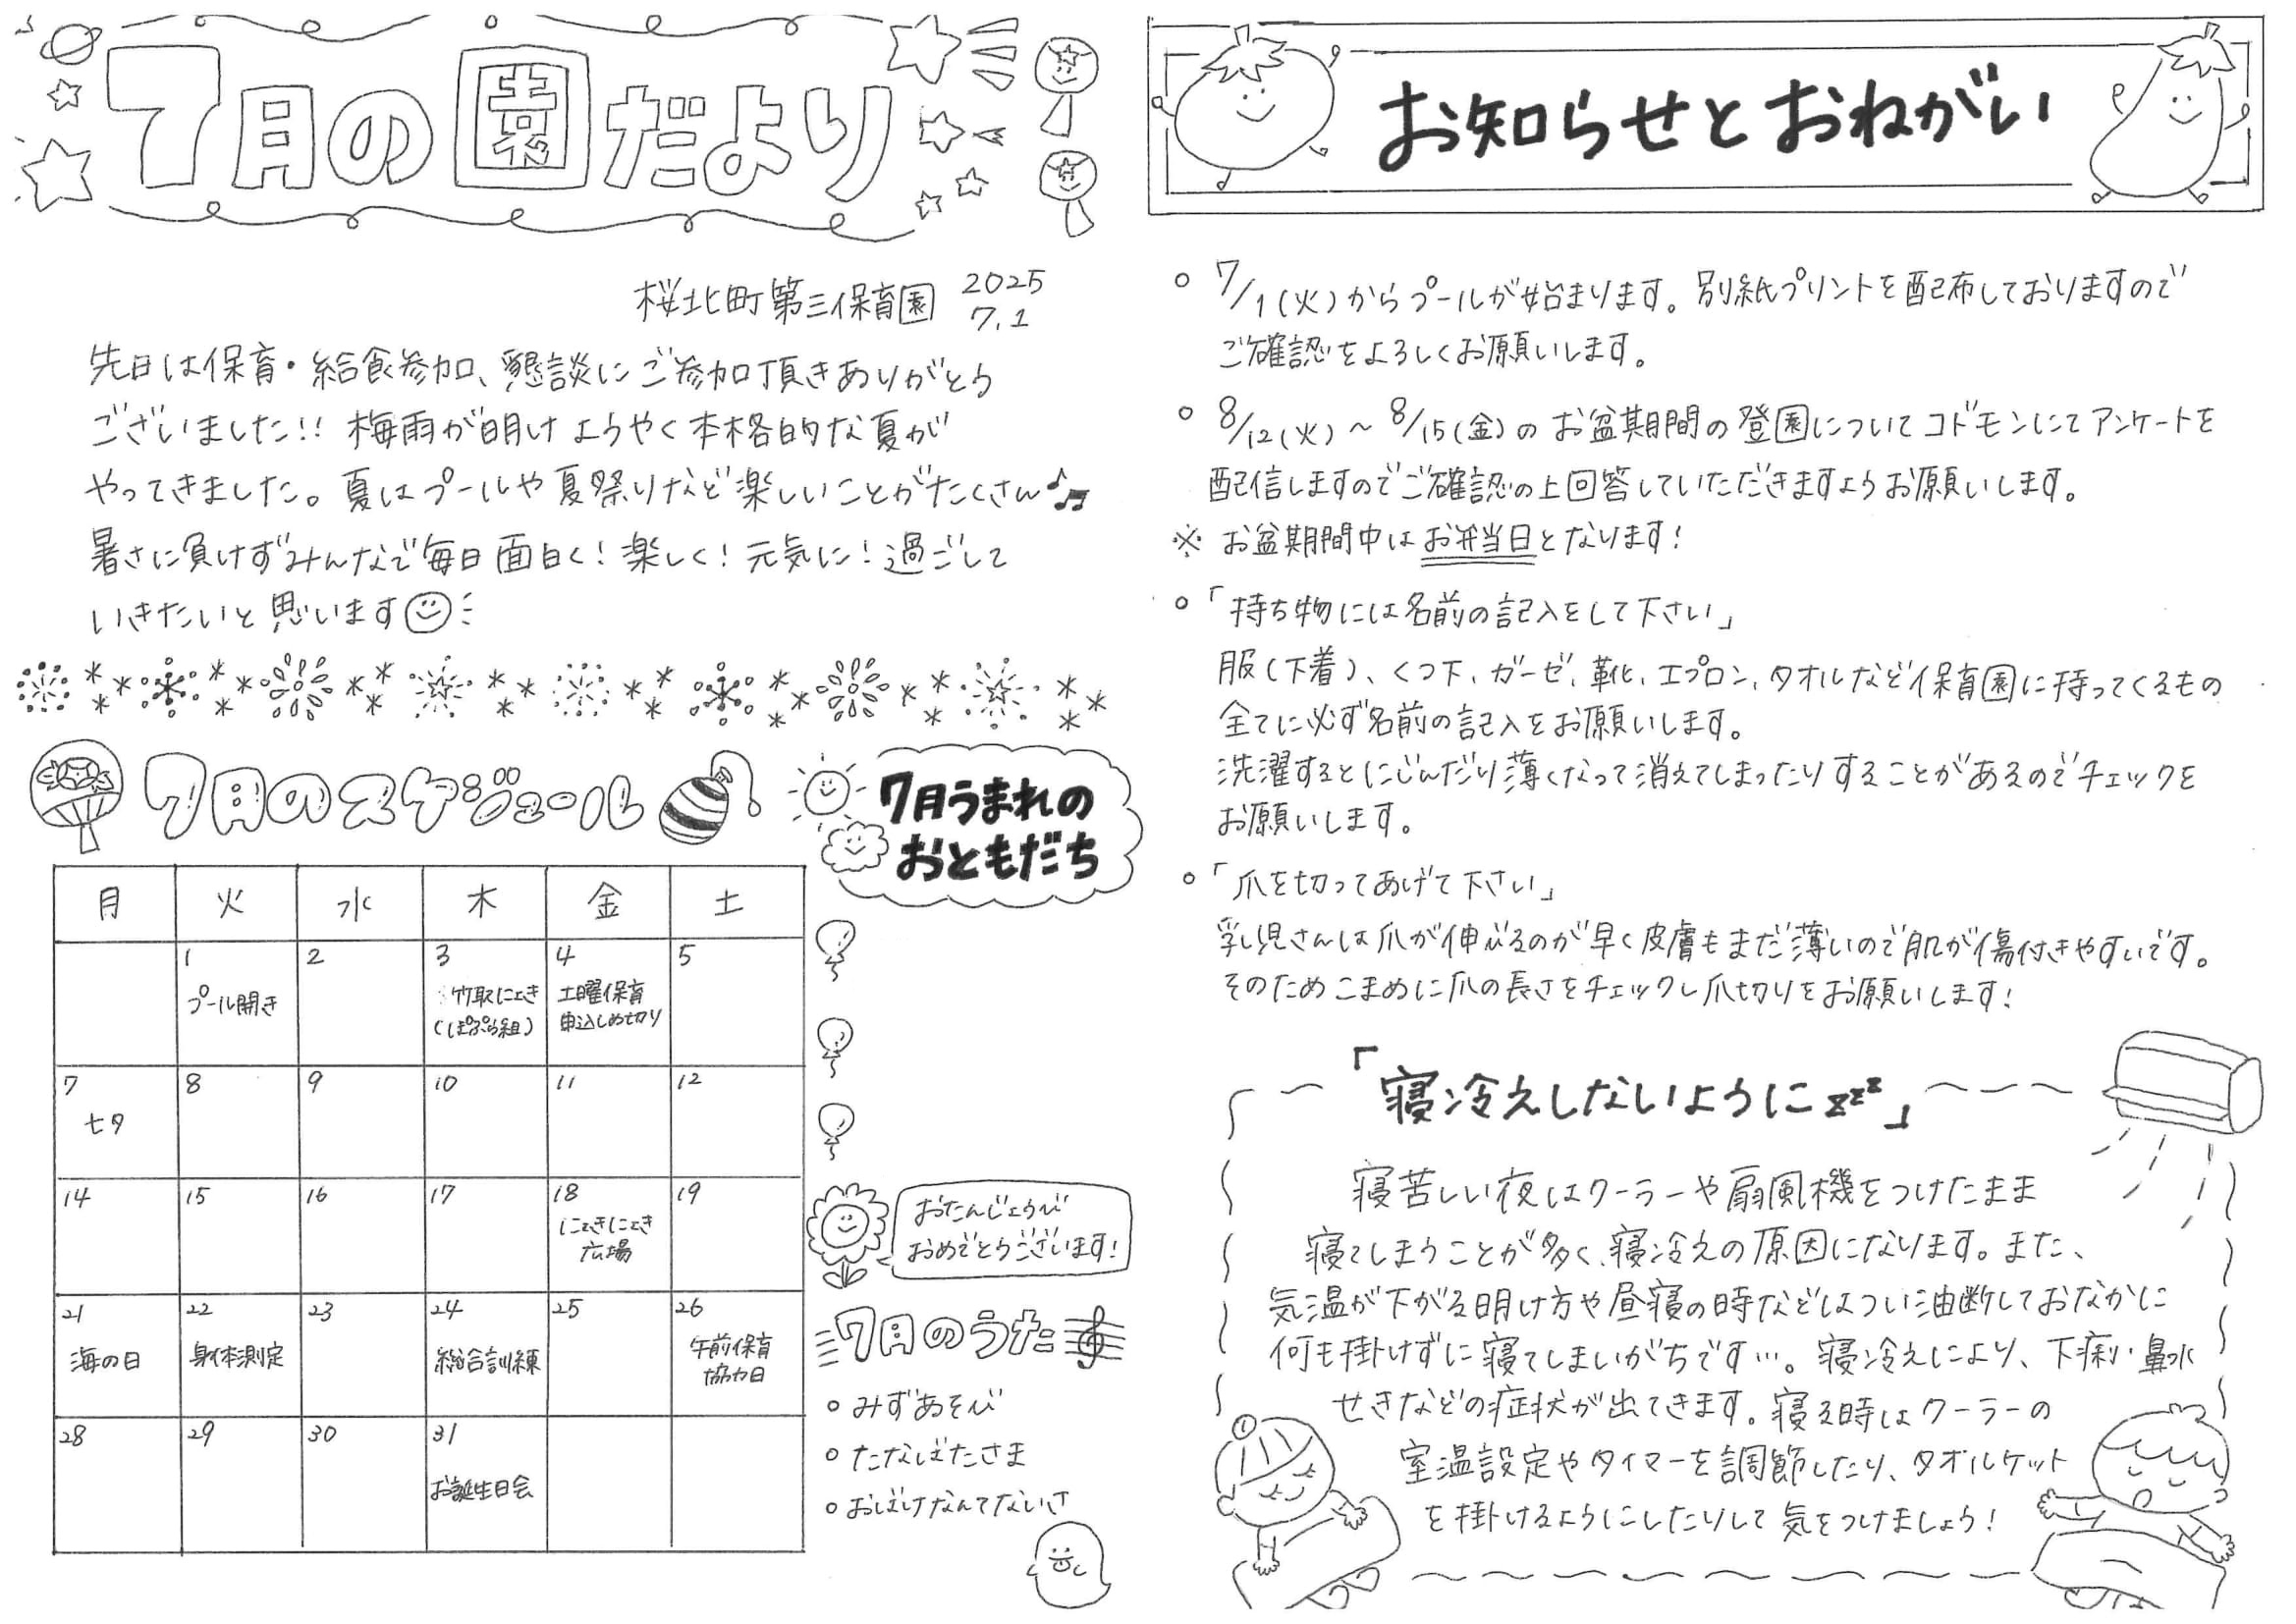 7月の園だより
桜北町第三保育園 2025
7.1
先日は保育・給食参加、懇談にご参加頂きありがとう
ございました!! 梅雨が明けようやく本格的な夏が
やってきました。夏はプールや夏祭りなど楽しいことがたくさん
暑さに負けずみんなで毎日面白く!楽しく!元気に!過ごして
いきたいと思います
7月のスケジュール
月 火 水 木 金 土
1 2 3 4 5
プール開き 竹取にょき 土曜保育
(ぽぷら組) 申込しめ切り
7 8 9 10 11 12
七夕
14 15 16 17 18 19
にょきにょき
広場
21 22 23 24 25 26
海の日 身体測定 総合訓練 午前保育
協力日
28 29 30 31
お誕生日会
7月うまれの
おともだち
おたんじょうび
おめでとうございます!
7月のうた
○ みずあそび
○ たなばたさま
○ おばけなんてないさ
お知らせとおねがい
○ 7/1(火)からプールが始まります。別紙プリントを配布しておりますので
ご確認をよろしくお願いします。
○ 8/12(火)~8/15(金)のお盆期間の登園についてコドモンにてアンケートを
配信しますのでご確認の上回答していただきますようお願いします。
※ お盆期間中はお弁当日となります!
○「持ち物には名前の記入をして下さい」
服(下着)、くつ下、ガーゼ、靴、エプロン、タオルなど保育園に持ってくるもの
全てに必ず名前の記入をお願いします。
洗濯するとにじんだり薄くなって消えてしまったりすることがあるのでチェックを
お願いします。
○「爪を切ってあげて下さい」
乳児さんは爪が伸びるのが早く皮膚もまだ薄いので肌が傷付きやすいです。
そのためこまめに爪の長さをチェックし爪切りをお願いします!
「寝冷えしないように zzz」
寝苦しい夜はクーラーや扇風機をつけたまま
寝てしまうことが多く、寝冷えの原因になります。また、
気温が下がる明け方や昼寝の時などはつい油断しておなかに
何も掛けずに寝てしまいがちです…。寝冷えにより、下痢・鼻水
せきなどの症状が出てきます。寝る時はクーラーの
室温設定やタイマーを調節したり、タオルケット
を掛けるようにしたりして気をつけましょう!